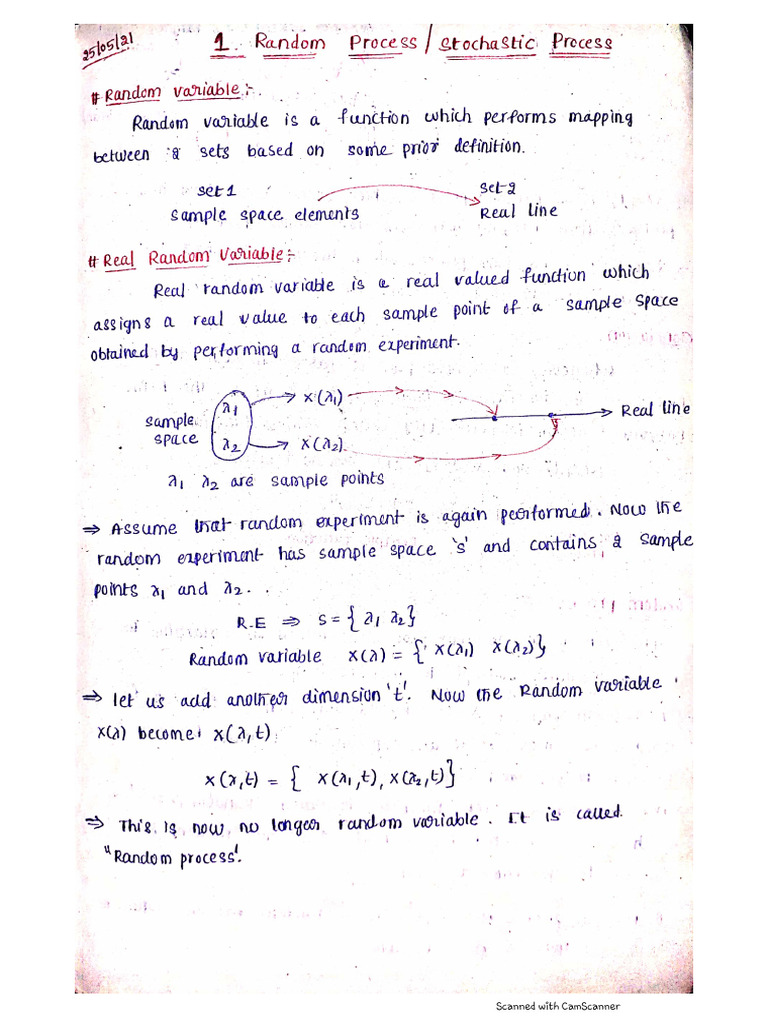 25/05/21
1. Random Process / Stochastic Process
# Random variable:-
Random variable is a function which performs mapping
between 2 sets based on some prior definition.
Set 1 Set-2
Sample space elements Real line
# Real Random Variable:-
Real random variable is a real valued function which
assigns a real value to each sample point of a sample space
obtained by performing a random experiment.
λ1 → X(λ1)
Sample space → Real line
λ2 → X(λ2)
λ1 λ2 are sample points
⇒ Assume that random experiment is again performed. Now the
random experiment has sample space 's' and contains 2 sample
points λ1 and λ2.
R.E ⇒ S = { λ1 λ2}
Random variable X(λ) = { X(λ1) X(λ2)}
⇒ let us add another dimension 't'. Now the Random variable
X(λ) become X(λ,t)
X(λ,t) = { X(λ1,t), X(λ2,t)}
⇒ This is now no longer random variable. It is called
"Random process'.
Scanned with CamScanner